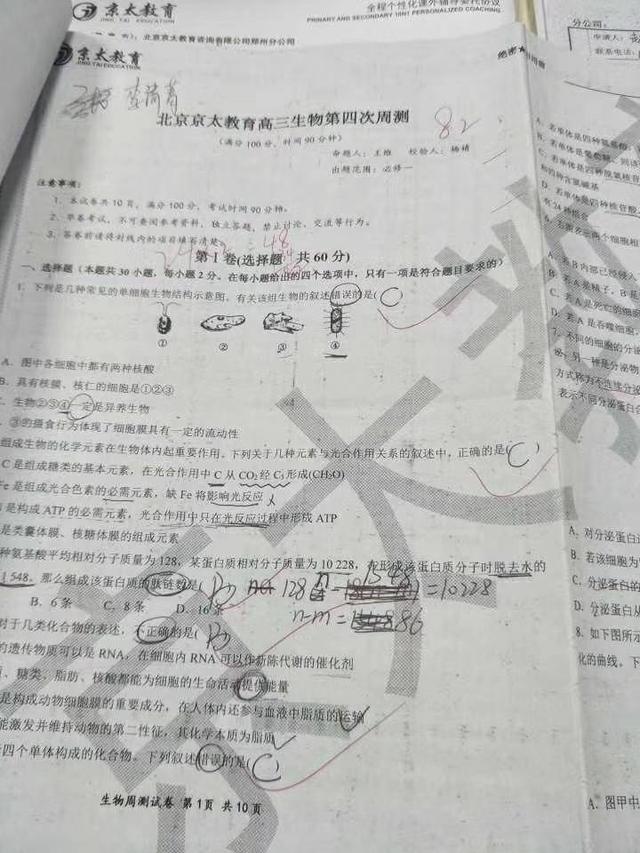 京太教育
JING TAI EDUCATION
全程个性化课外辅导委托协议
PRIMARY AND SECONDARY 1SN1 PERSONALIZED COACHING
北京京太教育咨询有限公司郑州分公司
分公司:
申请人:
联系电话:
京太教育
JING TAI EDUCATION
绝密★
北京京太教育高三生物第四次周测
82
(满分100分，时间90分钟)
命题人：王维 校验人：杨婧
出题范围：必修一
注意事项：
1. 本试卷共10页，满分100分，考试时间90分钟。
2. 毕卷考试，不可查阅参考资料，独立答题，禁止讨论、交流等行为。
3. 答卷前请将封线内的项目填写清楚。
48
第Ⅰ卷(选择题 共60分)
一、选择题（本题共30小题，每小题2分。在每小题给出的四个选项中，只有一项是符合题目要求的）
1. 下列是几种常见的单细胞生物结构示意图，有关该组生物的叙述错误的是( C )
① ② ③ ④
A. 图中各细胞中都有两种核酸
B. 具有核膜、核仁的细胞是①②③
C. 生物②③④一定是异养生物
③的摄食行为体现了细胞膜具有一定的流动性
组成生物的化学元素在生物体内起重要作用。下列关于几种元素与光合作用关系的叙述中，正确的是( C )
C 是组成糖类的基本元素，在光合作用中 C 从 CO₂ 经 C₃ 形成(CH₂O)
Fe 是组成光合色素的必需元素，缺 Fe 将影响光反应
是组成 ATP 的必需元素，光合作用中只在光反应过程中形成 ATP
是类囊体膜、核糖体膜的组成元素
种氨基酸平均相对分子质量为128，某蛋白质相对分子质量为10 228，在形成该蛋白质分子时脱去水的
1 548。那么组成该蛋白质的肽链数是( B 128n - 1548 = 10228
B. 6条 C. 8条 D. 16条 n-m= 86
对于几类化合物的表述，不正确的是( B
的遗传物质可以是 RNA，在细胞内 RNA 可以作新陈代谢的催化剂
糖类、脂肪、核酸都能为细胞的生命活动提供能量
是构成动物细胞膜的重要成分，在人体内还参与血液中脂质的运输
能激发并维持动物的第二性征，其化学本质为脂质
四个单体构成的化合物。下列叙述错误的是( C )
生物周测试卷 第1页 共10页
A. 若单体是四种氨基酸，
B. 若单体是葡萄糖，则该
C. 若单体是四种脱氧核苷
的种含氮碱基
D. 若单体是四种核苷酸，
有24种组合
6.
A. 若B内部已经侵入
B. 若A是精子，B是
C. 若A是死亡的细胞
D. 若A是吞噬细胞，
7. 不同的细胞的分泌
泌，另一种是分泌物
方式称为不连续分泌
表示不同分泌蛋白
A. 对分泌蛋白
B. 若该细胞为
C. 分泌蛋白的
D. 分泌蛋白从
8. 如下图所示
化的曲线。下
A. 图甲中